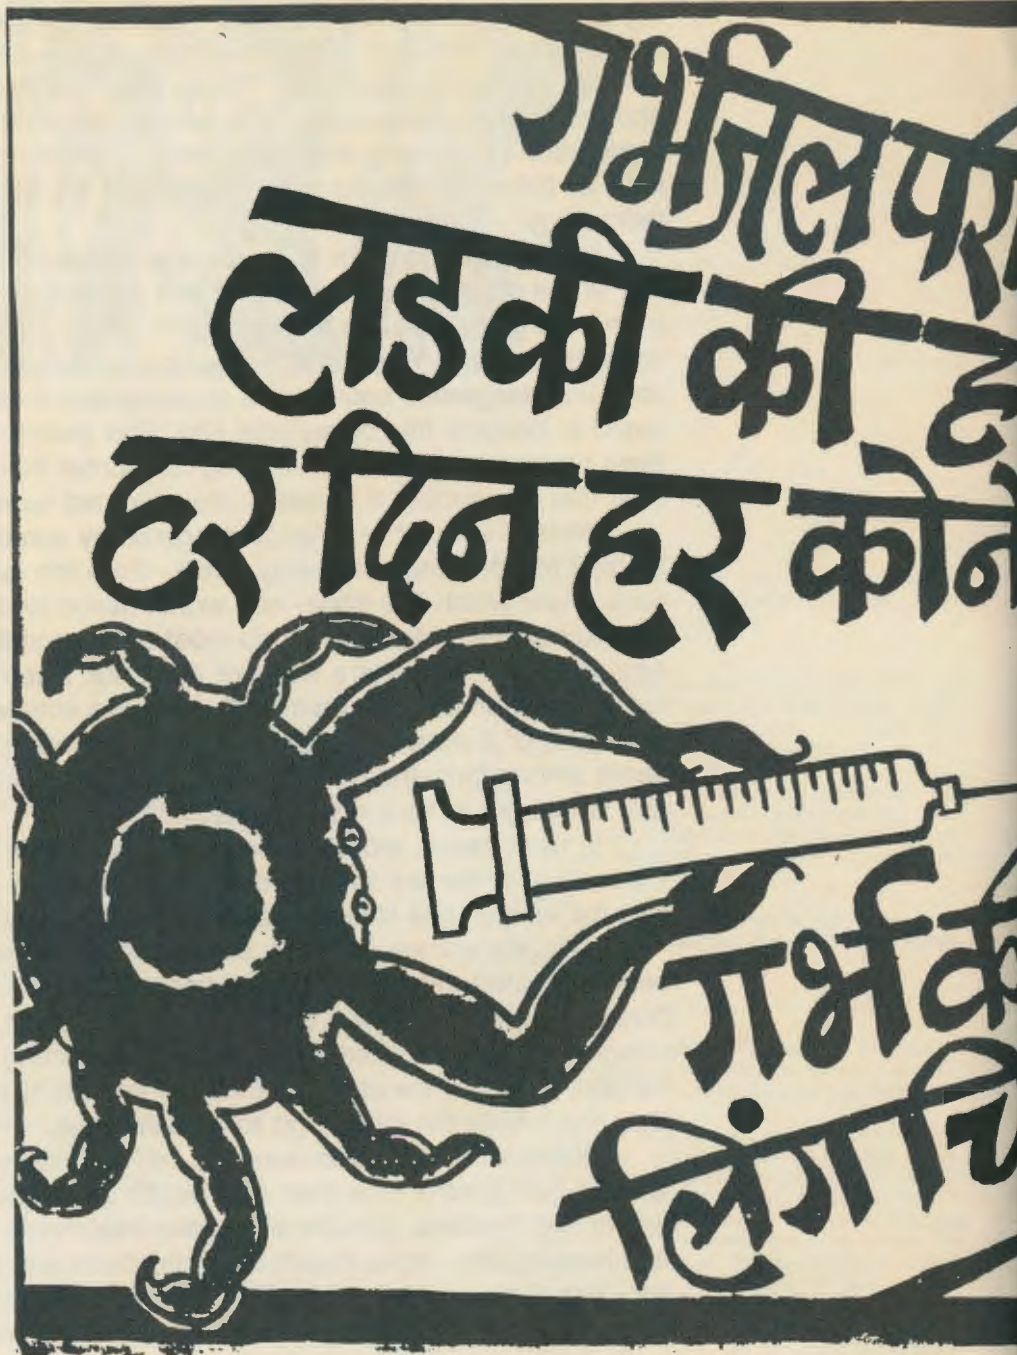 गर्भजल परी
लडकी की ह
हर दिन हर कोने
गर्भ के
लिंग चि